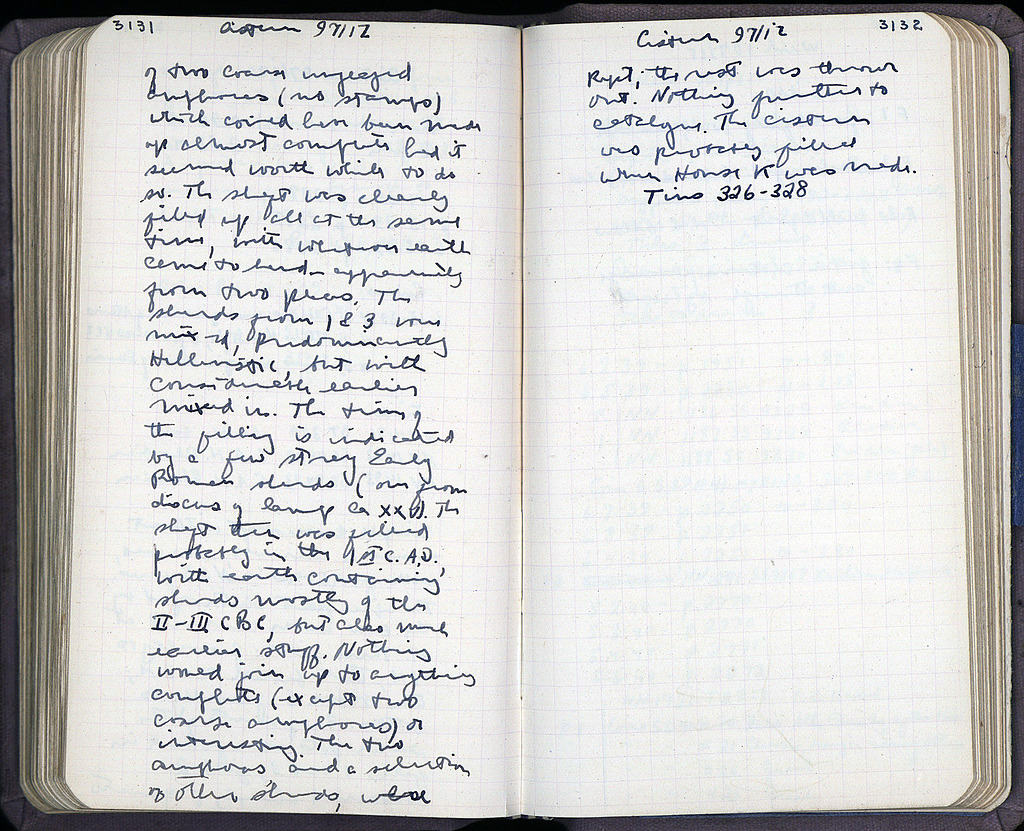 3131
Cistern 97/17
of two coarse unglazed
amphoras (no stamps)
which could have been made
up almost complete had it
seemed worth while to do
so. The shaft was clearly
filled up all at the same
time, with whatever earth
came to hand – apparently
from two places. The
sherds from 1 & 3 were
mixed, predominantly
Hellenistic, but with
considerable earlier
mixed in. The time of
the filling is indicated
by a few stray Early
Roman sherds (one from
discus of lamp ca XXII). The
shaft then was filled
probably in the 1st C. A.D.,
with earth containing
sherds mostly of the
II-III C BC, but also much
earlier stuff. Nothing
would join up to anything
complete (except two
coarse amphoras) or
interesting. The two
amphoras and a selection
of other sherds, were
3132
Cistern 97/17
kept; the rest was thrown
out. Nothing further to
catalogue. The cistern
was probably filled
when House K was made.
Tins 326-328